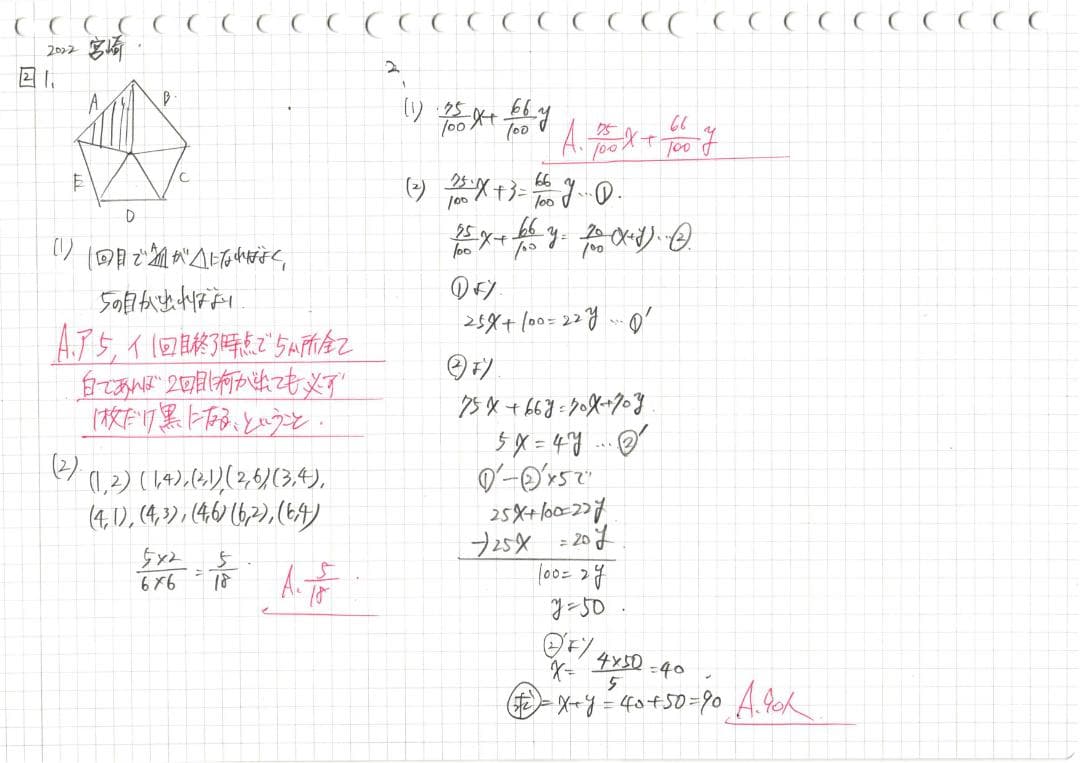 2022 宮崎
2 1.
A
B
E
C
D
(1) 1回目でAが△になればよく、
5の目が出ればよい
A.ア 5, イ 1回目終了時点で5ヵ所全て
白であれば2回目に何が出ても必ず
1枚だけ黒になる、ということ.
(2) (1,2) (1,4),(2,1),(2,6),(3,4),
(4,1),(4,3),(4,6)(6,2),(6,4)
5×2/6×6 = 5/18
A. 5/18
2.
(1) 75/100 x + 66/100 y
A. 75/100 x + 66/100 y
(2) 75/100 x + 3 = 66/100 y … ①.
75/100 x + 66/100 y = 70/100 (x+y) … ②
①より
25x + 100 = 22y … ①′
②より
75x + 66y = 70x + 70y
5x = 4y … ②′
①′ - ②′×5で
25x + 100 = 22y
-) 25x = 20y
100 = 2y
y = 50
②′より
x = 4×50/5 = 40
求 = x + y = 40 + 50 = 90
A. 90人